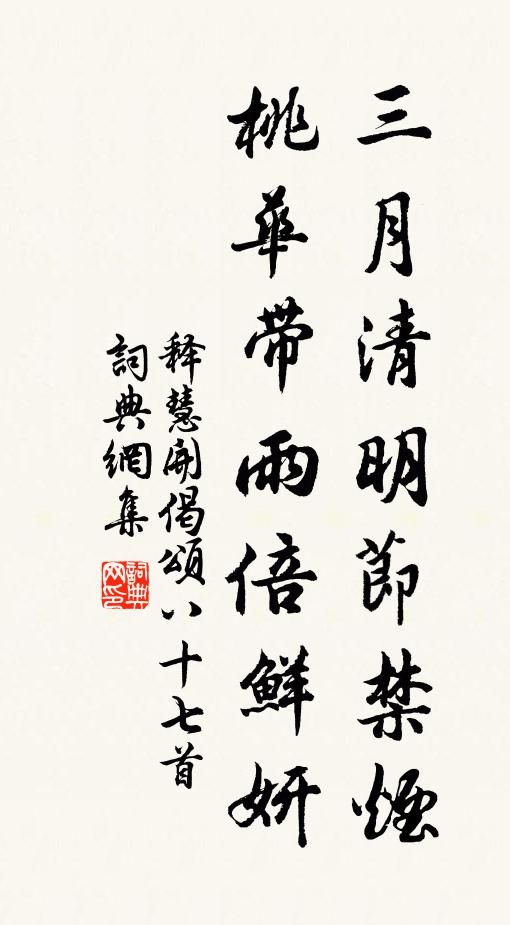 三月清明節禁煙
桃華帶雨倍鮮妍
释慧開偈頌八十七首
詞典網集
詞典网印